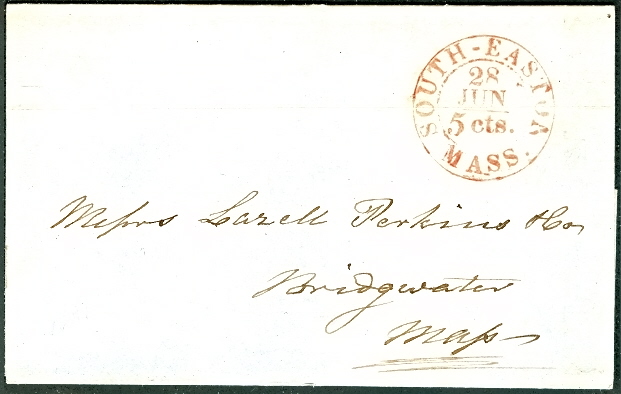 SOUTH-EASTON
28
JUN
5 cts.
MASS.
Messrs Lazell Perkins & Co
Bridgwater
Mass